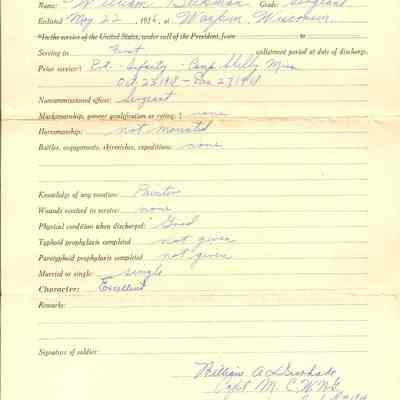 Name: William Grade: Sergeant
Enlisted May 22, 1924, at Waupun, Wisconsin.
*In the service of the United States, under call of the President, from to
Serving in First enlistment period at date of discharge.
Prior service: Pvt - Infantry - Camp Shelby Miss
Oct 23 1918 - Dec 27 1918
Noncommissioned officer: Sergeant
Marksmanship, gunner qualification or rating: † none
Horsemanship: not mounted
Battles, engagements, skirmishes, expeditions: none
Knowledge of any vocation: Painter
Wounds received in service: none
Physical condition when discharged: Good
Typhoid prophylaxis completed not given
Paratyphoid prophylaxis completed not given
Married or single: single
Character: Excellent
Remarks:
Signature of soldier:
William A
Capt M. C. W. N. G.